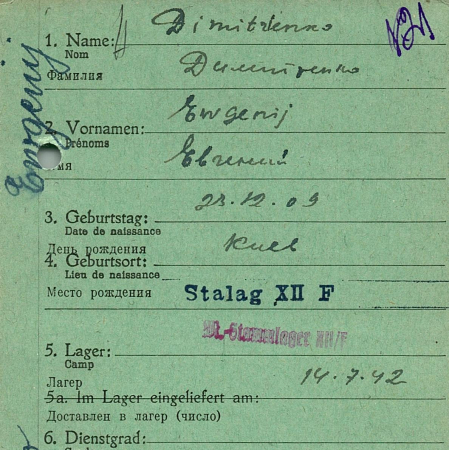 Dimitrenko
№21
1. Name:
Nom
Фамилия
Димитренко
Ewgenij
Ewgenij
2. Vornamen:
Prénoms
Имя
Евгений
23.12.09
3. Geburtstag:
Date de naissance
День рождения
Киев
4. Geburtsort:
Lieu de naissance
Место рождения
Stalag XII F
M.-Stammlager XII/F
5. Lager:
Camp
Лагер
14.7.42
5a. Im Lager eingeliefert am:
Доставлен в лагер (число)
6. Dienstgrad: